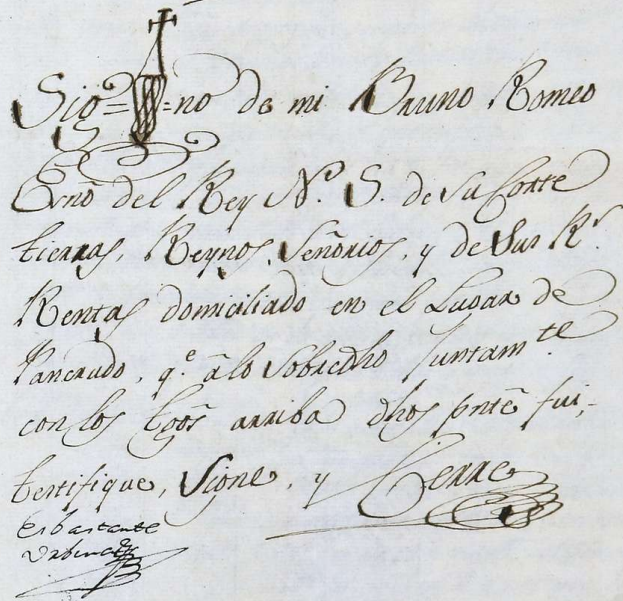 Sig= =no de mi Bruno Romeo
Esno del Rey No. S. de su Corte
tierras, Reynos, Señorios, y de sus Rs.
Rentas domiciliado en el Lugar de
Pancrudo, qe. a lo sobredho Juntamte.
con los tgos arriba dhos pnte fui,
testifique, signe, y Cerre
es bastante